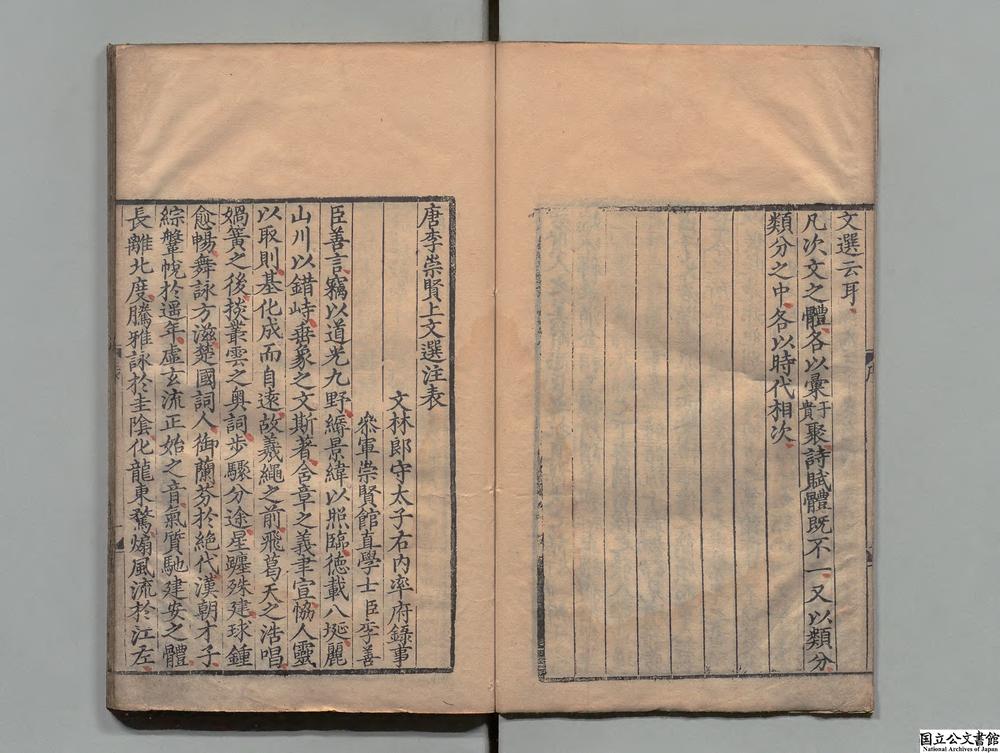 文選云耳
凡次文之體各以彙聚詩賦體既不一又以類分
于貴
類分之中各以時代相次
唐李崇賢上文選注表
文林郎守太子右内率府錄事
叅軍崇賢館直學士臣李善
臣善言竊以道光九野縟景緯以照臨德載八埏麗
山川以錯峙垂象之文斯著含章之義聿宣恊人靈
以取則基化成而自遠故羲繩之前飛葛天之浩唱
媧簧之後掞叢雲之奥詞步驟分途星躔殊建球鍾
愈暢舞詠方滋楚國詞人御蘭芬於絶代漢朝才子
綜鞶帨於遥年虛玄流正始之音氣質馳建安之體
長離北度騰雅詠於圭陰化龍東騖煽風流於江左
国立公文書館
National Archives of Japan